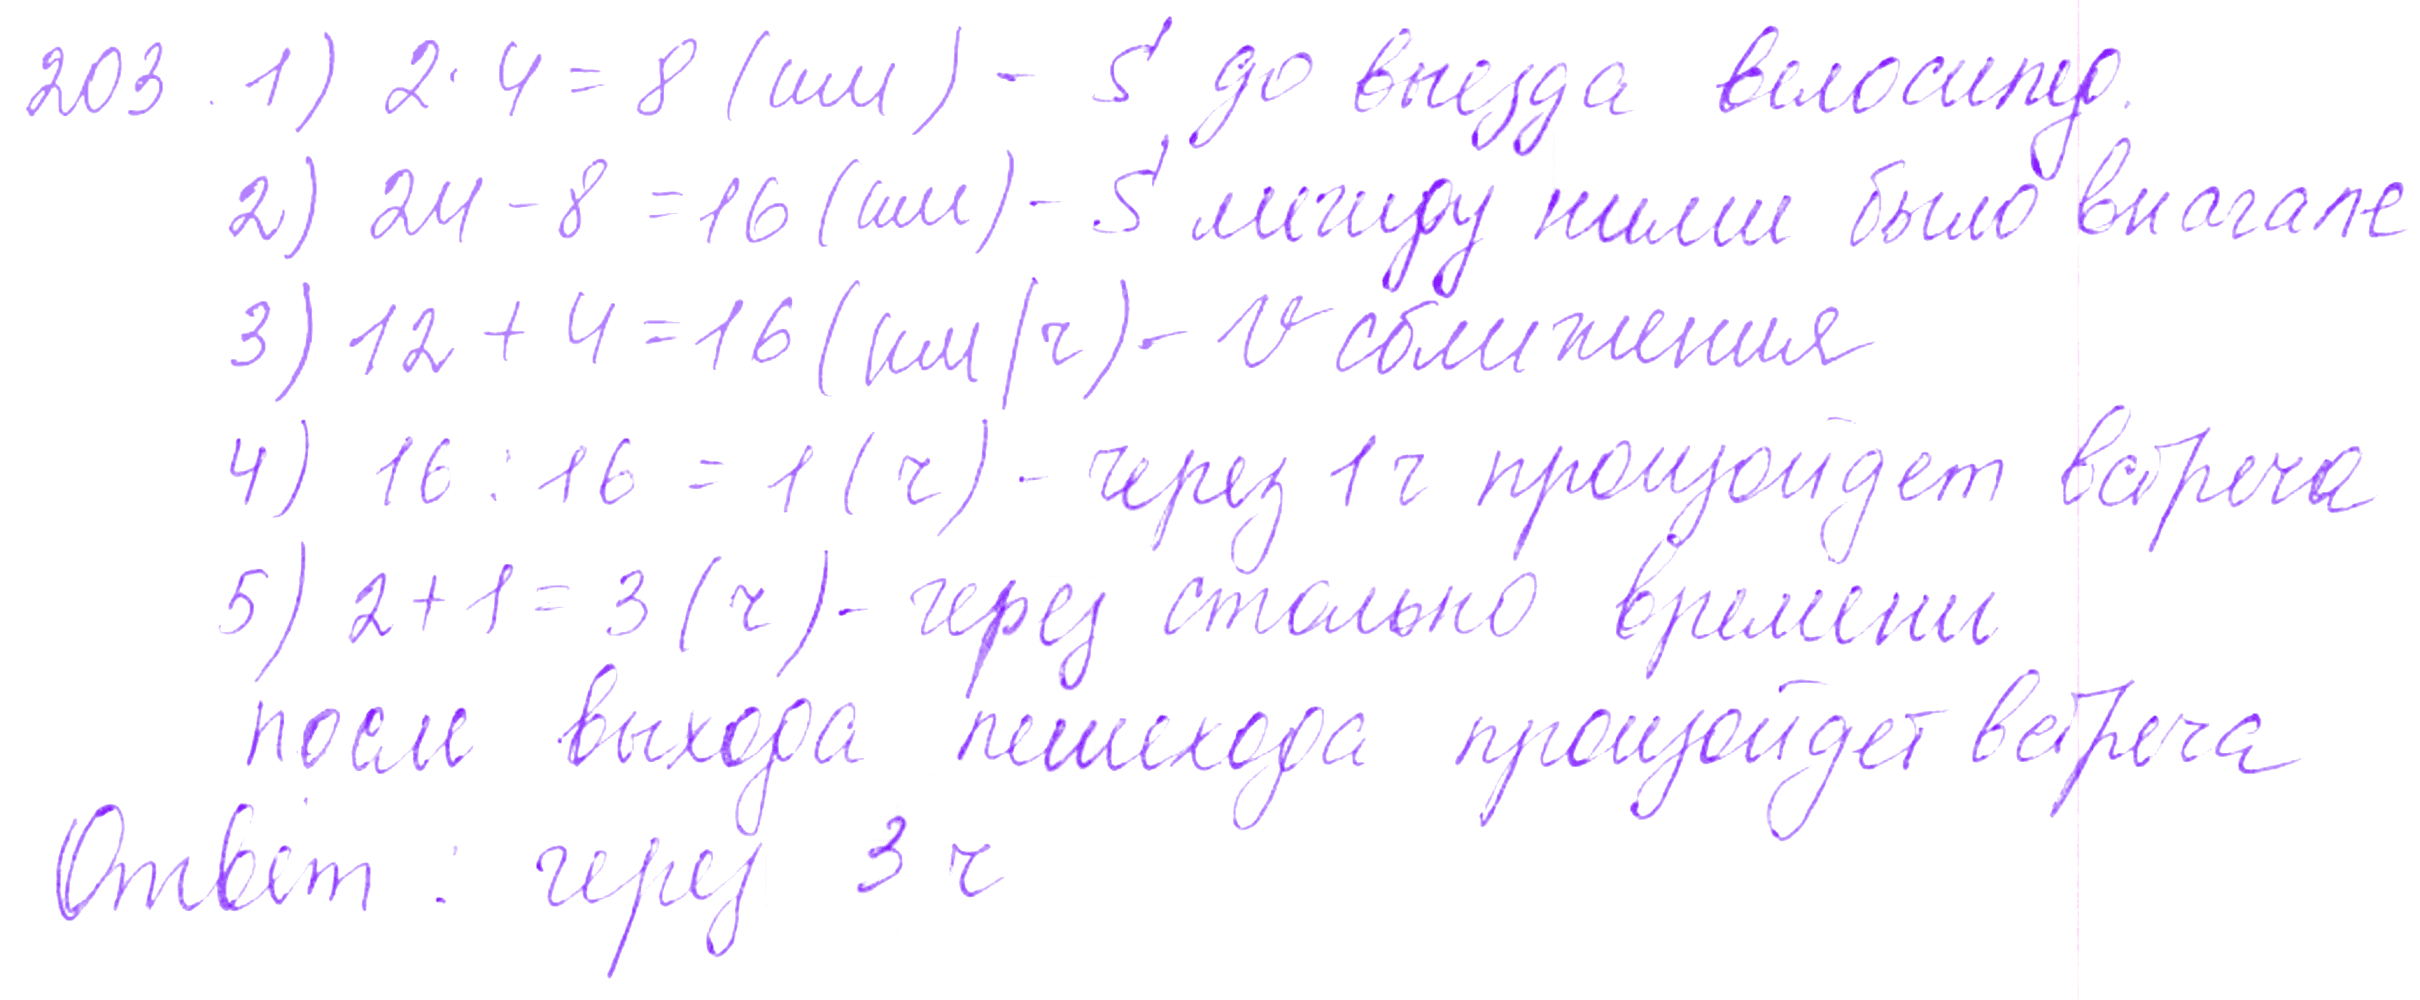 203. 1) 2 · 4 = 8 (км) - S до выезда велосипед.
2) 24 - 8 = 16 (км) - S между ними было вначале
3) 12 + 4 = 16 (км/ч) - V сближения
4) 16 : 16 = 1 (ч) - через 1 ч произойдет встреча
5) 2 + 1 = 3 (ч) - через столько времени
после выхода пешехода произойдет встреча
Ответ : через 3 ч